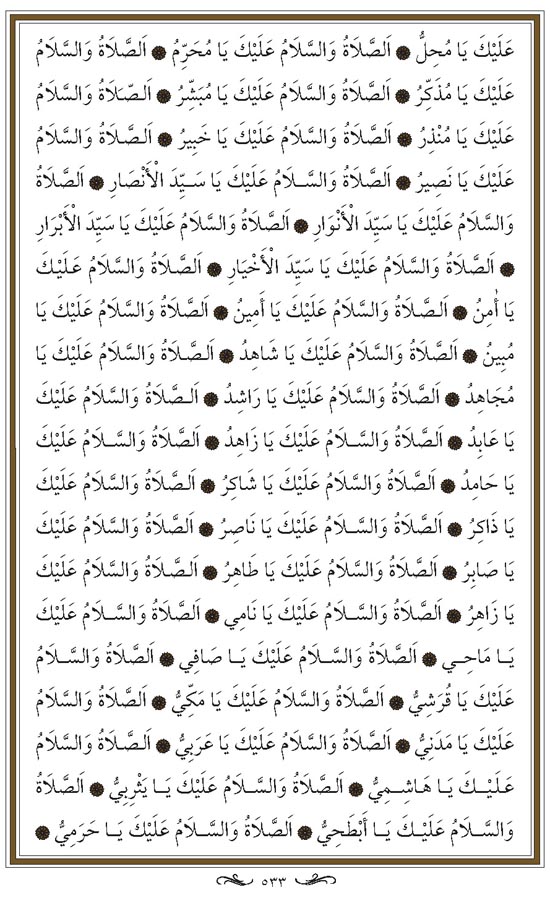 عَلَيْكَ يَا مُحِلُّ ۞ اَلصَّلَاةُ وَالسَّلَامُ عَلَيْكَ يَا مُحَرِّمُ ۞ اَلصَّلَاةُ وَالسَّلَامُ
عَلَيْكَ يَا مُذَكِّرُ ۞ اَلصَّلَاةُ وَالسَّلَامُ عَلَيْكَ يَا مُبَشِّرُ ۞ اَلصَّلَاةُ وَالسَّلَامُ
عَلَيْكَ يَا مُنْذِرُ ۞ اَلصَّلَاةُ وَالسَّلَامُ عَلَيْكَ يَا خَبِيرُ ۞ اَلصَّلَاةُ وَالسَّلَامُ
عَلَيْكَ يَا نَصِيرُ ۞ اَلصَّلَاةُ وَالسَّلَامُ عَلَيْكَ يَا سَيِّدَ الْأَنْصَارِ ۞ اَلصَّلَاةُ
وَالسَّلَامُ عَلَيْكَ يَا سَيِّدَ الْأَنْوَارِ ۞ اَلصَّلَاةُ وَالسَّلَامُ عَلَيْكَ يَا سَيِّدَ الْأَبْرَارِ
۞ اَلصَّلَاةُ وَالسَّلَامُ عَلَيْكَ يَا سَيِّدَ الْأَخْيَارِ ۞ اَلصَّلَاةُ وَالسَّلَامُ عَلَيْكَ
يَا أٰمِنُ ۞ اَلصَّلَاةُ وَالسَّلَامُ عَلَيْكَ يَا أَمِينُ ۞ اَلصَّلَاةُ وَالسَّلَامُ عَلَيْكَ يَا
مُبِينُ ۞ اَلصَّلَاةُ وَالسَّلَامُ عَلَيْكَ يَا شَاهِدُ ۞ اَلصَّلَاةُ وَالسَّلَامُ عَلَيْكَ يَا
مُجَاهِدُ ۞ اَلصَّلَاةُ وَالسَّلَامُ عَلَيْكَ يَا رَاشِدُ ۞ اَلصَّلَاةُ وَالسَّلَامُ عَلَيْكَ
يَا عَابِدُ ۞ اَلصَّلَاةُ وَالسَّلَامُ عَلَيْكَ يَا زَاهِدُ ۞ اَلصَّلَاةُ وَالسَّلَامُ عَلَيْكَ
يَا حَامِدُ ۞ اَلصَّلَاةُ وَالسَّلَامُ عَلَيْكَ يَا شَاكِرُ ۞ اَلصَّلَاةُ وَالسَّلَامُ عَلَيْكَ
يَا ذَاكِرُ ۞ اَلصَّلَاةُ وَالسَّلَامُ عَلَيْكَ يَا نَاصِرُ ۞ اَلصَّلَاةُ وَالسَّلَامُ عَلَيْكَ
يَا صَابِرُ ۞ اَلصَّلَاةُ وَالسَّلَامُ عَلَيْكَ يَا طَاهِرُ ۞ اَلصَّلَاةُ وَالسَّلَامُ عَلَيْكَ
يَا زَاهِرُ ۞ اَلصَّلَاةُ وَالسَّلَامُ عَلَيْكَ يَا نَامِي ۞ اَلصَّلَاةُ وَالسَّلَامُ عَلَيْكَ
يَا مَاحِي ۞ اَلصَّلَاةُ وَالسَّلَامُ عَلَيْكَ يَا صَافِي ۞ اَلصَّلَاةُ وَالسَّلَامُ
عَلَيْكَ يَا قُرَشِيُّ ۞ اَلصَّلَاةُ وَالسَّلَامُ عَلَيْكَ يَا مَكِّيُّ ۞ اَلصَّلَاةُ وَالسَّلَامُ
عَلَيْكَ يَا مَدَنِيُّ ۞ اَلصَّلَاةُ وَالسَّلَامُ عَلَيْكَ يَا عَرَبِيُّ ۞ اَلصَّلَاةُ وَالسَّلَامُ
عَلَيْكَ يَا هَاشِمِيُّ ۞ اَلصَّلَاةُ وَالسَّلَامُ عَلَيْكَ يَا يَثْرِبِيُّ ۞ اَلصَّلَاةُ
وَالسَّلَامُ عَلَيْكَ يَا أَبْطَحِيُّ ۞ اَلصَّلَاةُ وَالسَّلَامُ عَلَيْكَ يَا حَرَمِيُّ ۞
٥٣٣